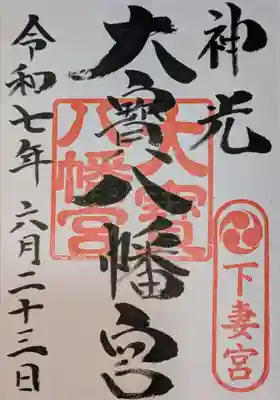 神光
大寳八幡宮
令和七年六月二十三日
大寳
八幡宮
下妻宮